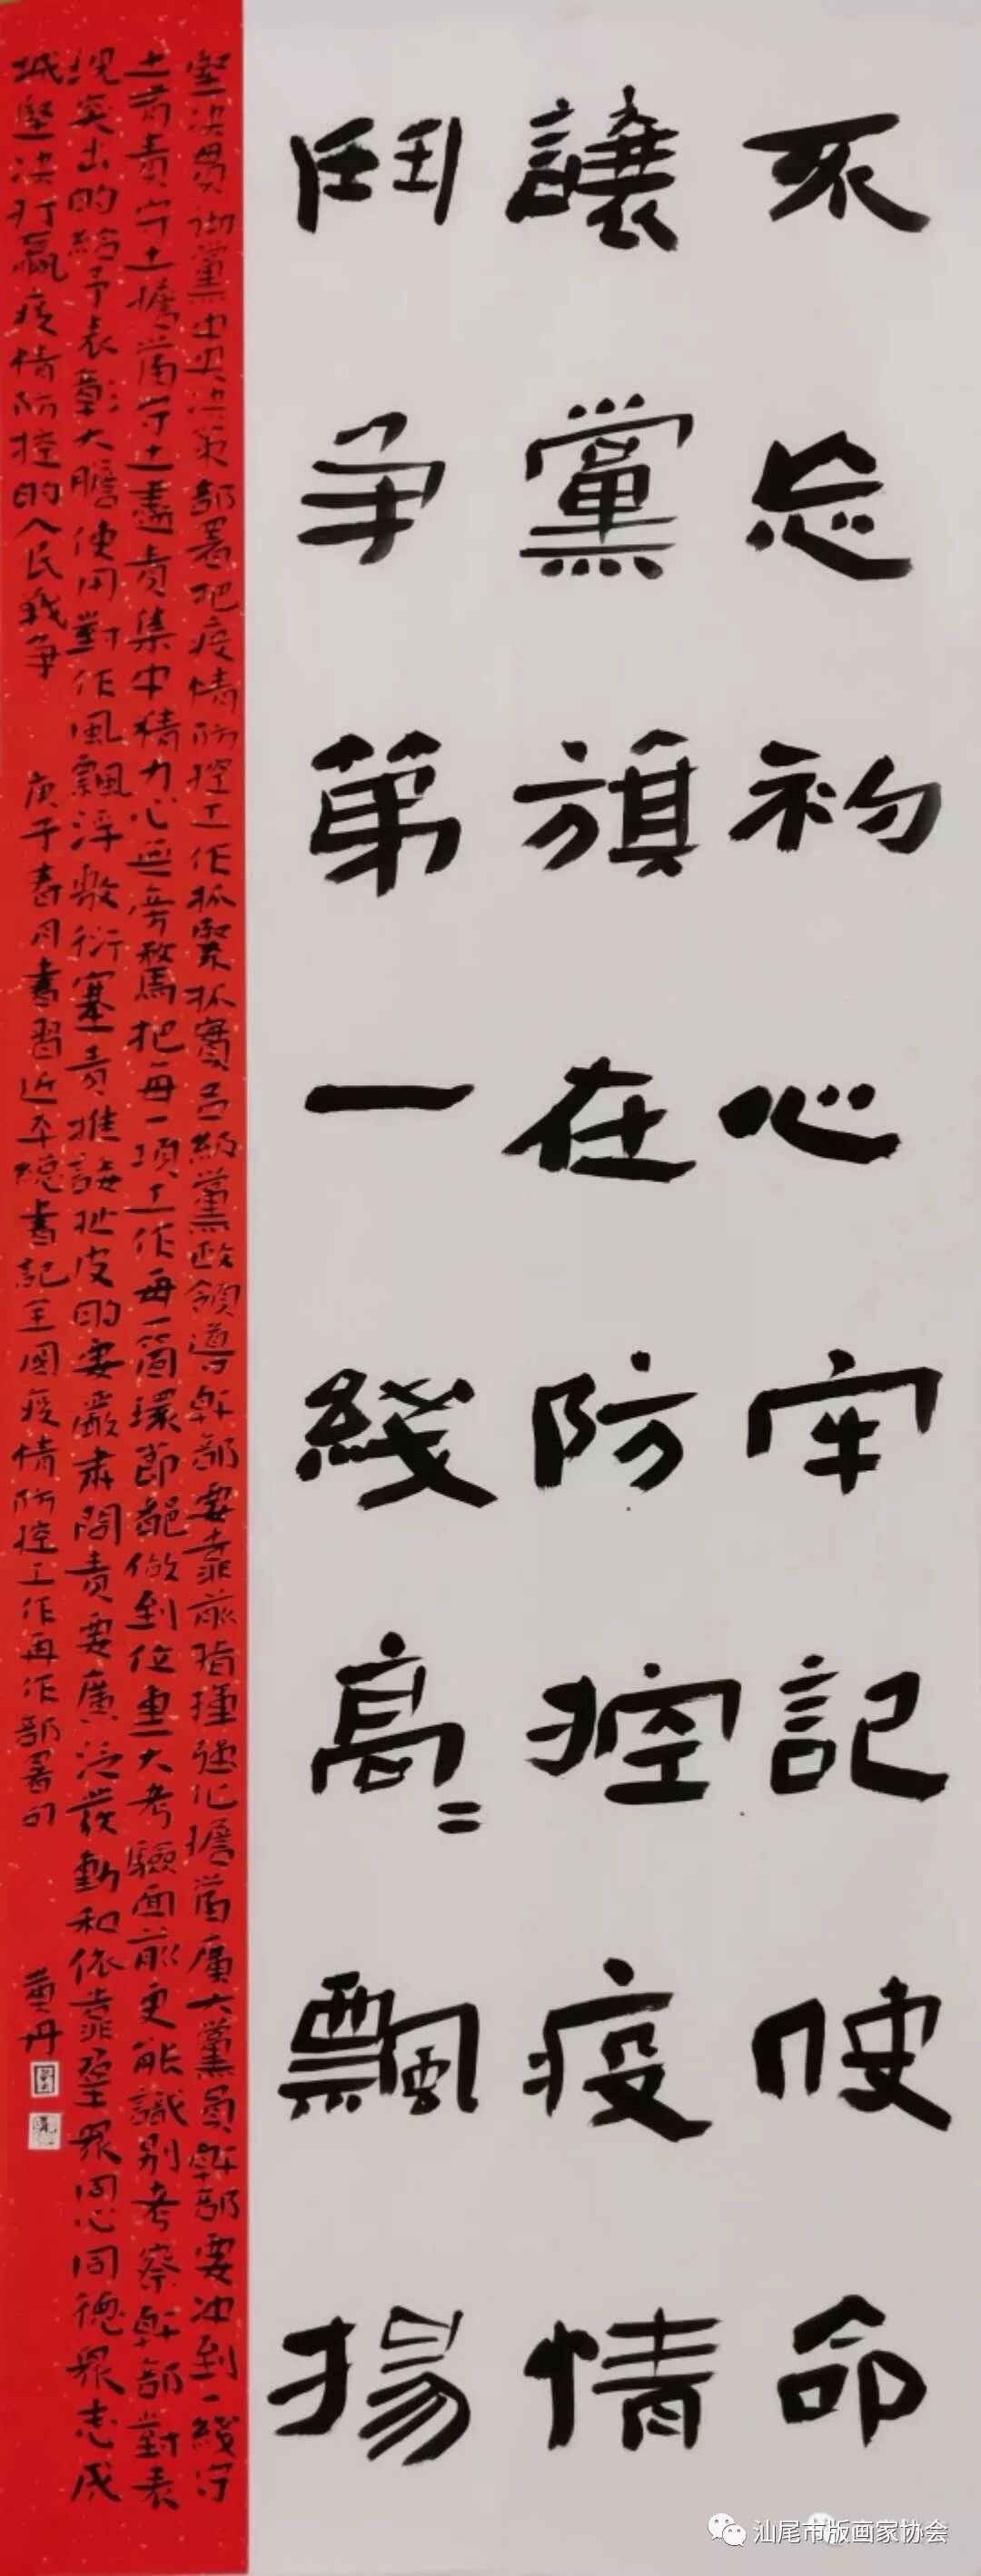 不忘初心牢記使命
讓黨旗在防控疫情
鬥争第一綫高〻飄揚
堅决貫徹黨中央决策部署把疫情防控工作抓緊抓實各級黨政領導幹部要靠前指揮強化擔當廣大黨員幹部要冲到一綫守
土有責守土擔當守土盡責集中精力心無旁騖把每一項工作每一箇環節都做到位重大考驗面前更能識别考察幹部對表
現突出的給予表彰大膽使用對作風飄浮敷衍塞責推諉扯皮的要嚴肅問責要廣泛發動和依靠羣衆同心同德衆志成
城堅决打贏疫情防控的人民戰争 庚子春月書習近平總書記全國疫情防控工作再作部署句 黄丹
汕尾市版画家协会